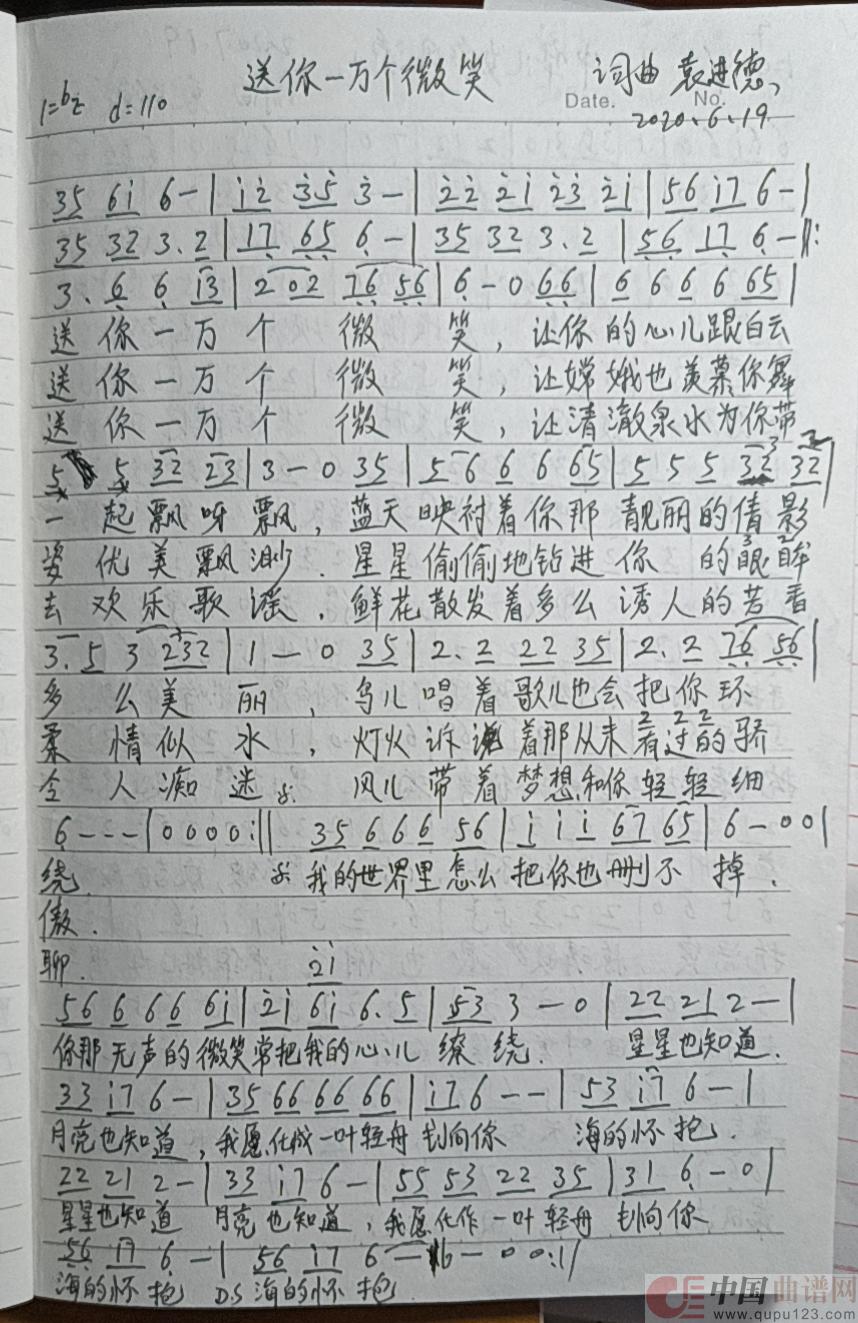 送你一万个微笑 词曲 袁进德、
Date. No.
1=bE d=110 2020.6.19
35 61 6-| 12 35 3-| 22 21 23 21 | 56 17 6-|
35 32 3.2 | 17 65 6-| 35 32 3.2 | 56 17 6-‖:
3. 6 6 13 | 2 02 76 56 | 6-0 66 | 6 6 6 6 65 |
送你一万个 微 笑，让你的心儿跟白云
送你一万个 微 笑，让嫦娥也羡慕你舞
送你一万个 微 笑，让清澈泉水为你带
5 5 32 23 | 3-0 35 | 56 6 6 65 | 5 5 5 32 32 |
一起飘呀飘，蓝天映衬着你那靓丽的倩影
姿优美飘渺．星星偷偷地钻进你的眼眸
去欢乐歌谣．鲜花散发着多么诱人的芳香
3.5 3 232 | 1-0 35 | 2.2 22 35 | 2.2 76 56 |
多么美丽，鸟儿唱着歌儿也会把你环
柔情似水，灯火诉说着那从未有过的骄
令人痴迷。风儿带着梦想和你轻轻细
6---| 0000 :‖ 35 6 6 6 56 | 1 1 1 67 65 | 6-00 |
绕． 我的世界里怎么把你也删不掉．
傲．
聊． 21
56 6 6 6 61 | 21 61 6.5 | 53 3-0 | 22 21 2-|
你那无声的微笑常把我的心儿缭绕． 星星也知道．
33 17 6-| 35 66 66 66 | 17 6--| 53 17 6-|
月亮也知道，我愿化成一叶轻舟划向你 海的怀抱．
22 21 2-| 33 17 6-| 55 53 22 35 | 31 6-0 |
星星也知道 月亮也知道，我愿化作一叶轻舟划向你
56 17 6-| 56 17 6-| 6-00 :‖
海的怀抱 DS 海的怀抱．
中国曲谱网
www.qupu123.com